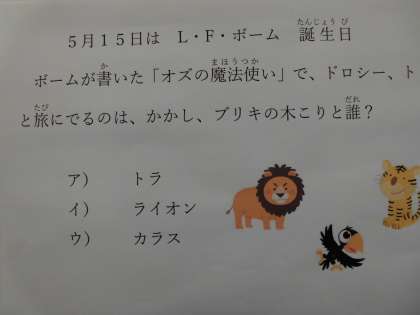 ５月１５日は　Ｌ・Ｆ・ボーム　誕生日
ボームが書いた「オズの魔法使い」で、ドロシー、ト
と旅にでるのは、かかし、ブリキの木こりと誰？
ア）　トラ
イ）　ライオン
ウ）　カラス